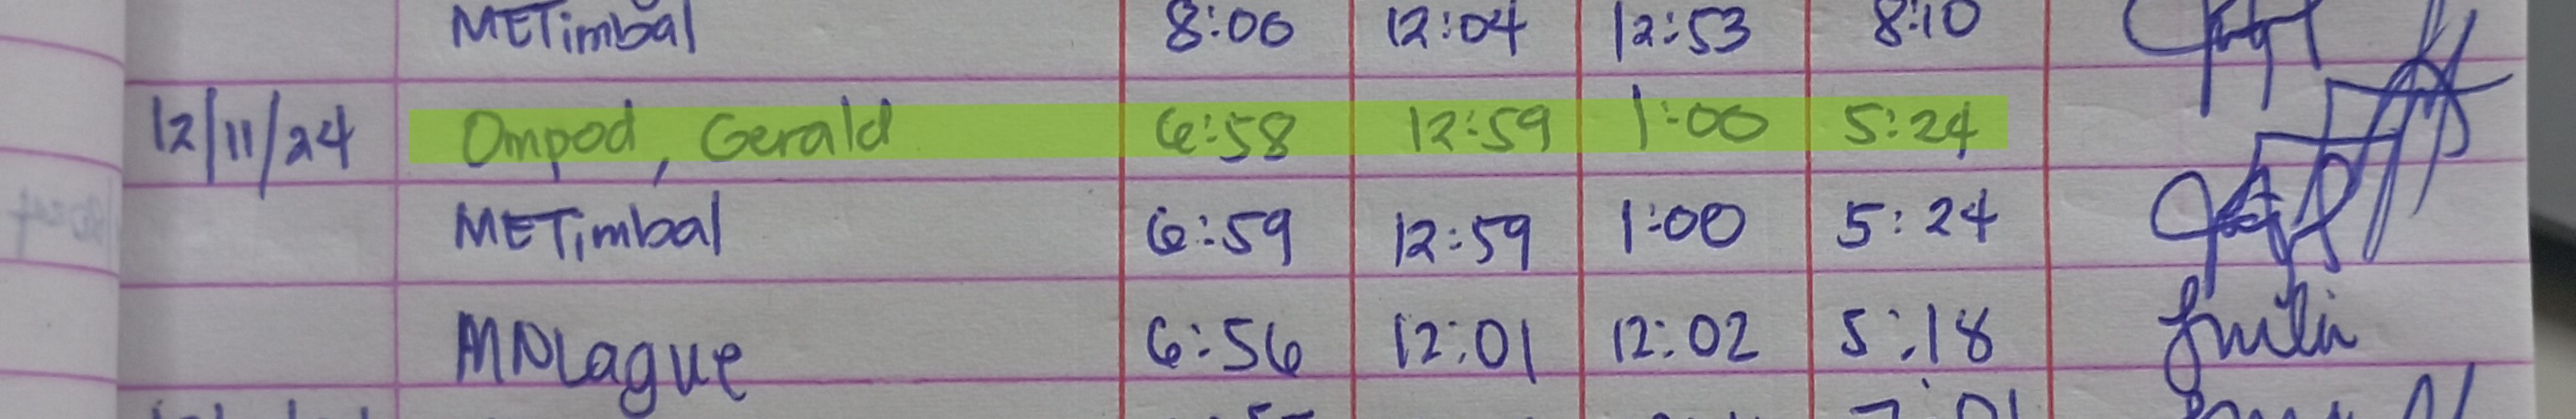 METimbal 8:00 12:04 12:53 8:10
12/11/24 Ompod, Gerald 6:58 12:59 1:00 5:24
METimbal 6:59 12:59 1:00 5:24
MNLague 6:56 12:01 12:02 5:18